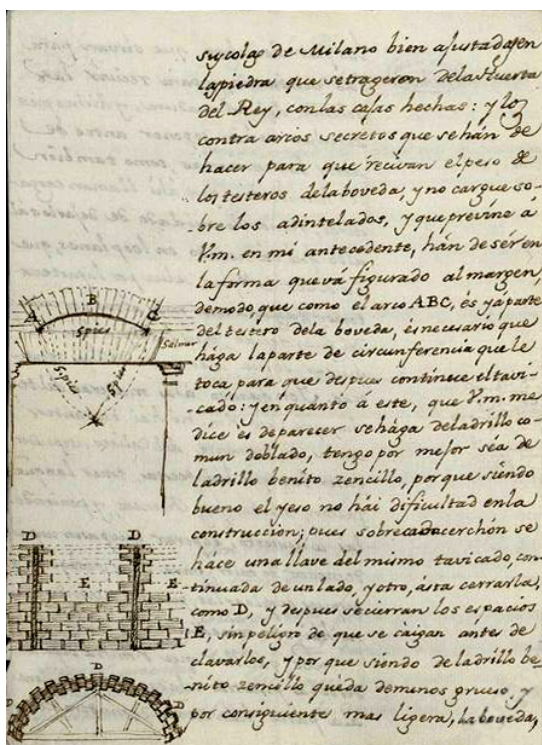 su colga de Milano bien ajustadas en
la piedra que se trageron de la Huerta
del Rey, con las casas hechas: y los
contra arcos secretos que se hán de
hacer para que recivan el peso de
los testeros de la boveda, y no cargue so-
bre los adintelados, y que previne á
Vm. en mi antecedente, hán de sér en
la forma que vá figurado al margen,
de modo, que como el arco ABC, és ya parte
del testero de la boveda, és necesario que
hága la parte de circunferencia que le
toca para que despues continúe el tavi-
cado: y en quánto á este, que Vm. me
dice és de parecer se hága de ladrillo co-
mun doblado, tengo por mejor séa de
ladrillo benito zencillo, por que siendo
bueno el yeso no hái dificultad en la
construccion; pues sobre cada cerchón se
háce una llave del mismo tavicado, con-
tinuada de un lado, y otro, ásta cerrarla,
como D, y despues se cierran los espacios
E, sin peligro de que se cáigan antes de
clavarlos, y por que siendo de ladrillo be-
nito zencillo quéda de menos grueso, y
por consiguiente mas ligera, la boveda,
B
A
C
5 pies
Salmer
5 pies
5 pies
D
D
E
E
D